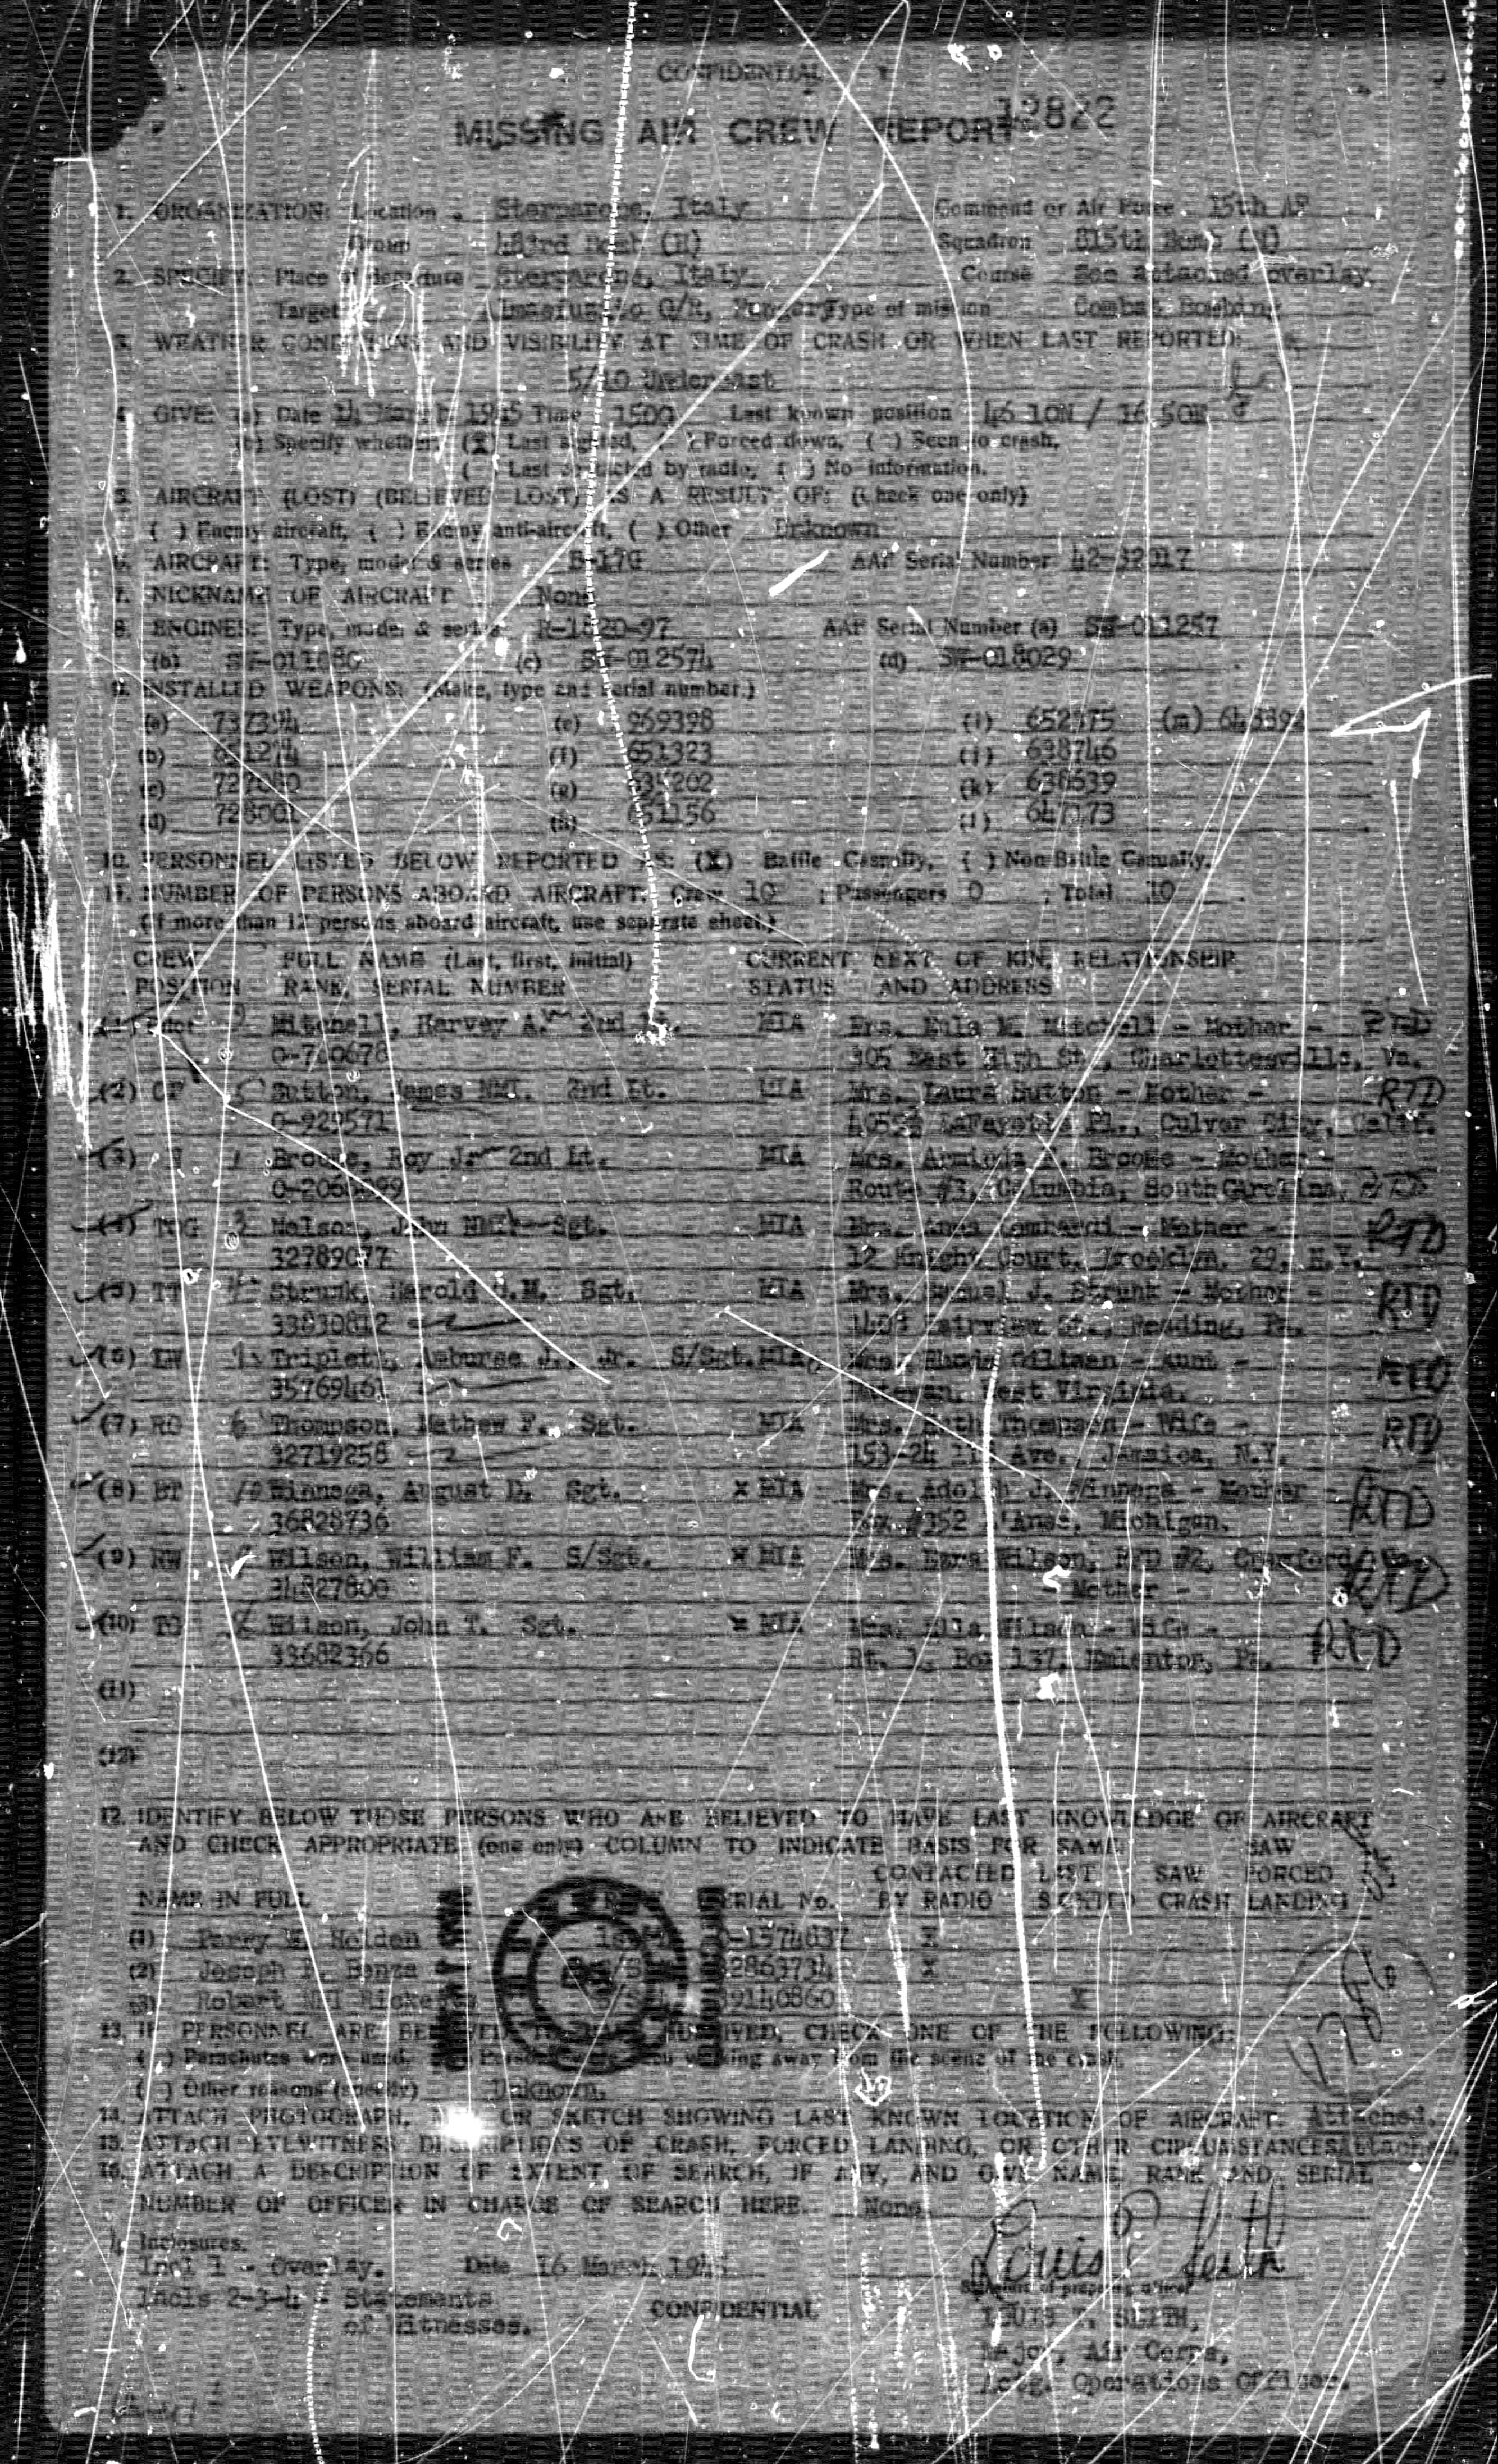 CONFIDENTIAL
MISSING AIR CREW REPORT 12822
1. ORGANIZATION: Location Sterparone, Italy Command or Air Force 15th AF
Group 483rd Bomb (H) Squadron 815th Bomb (H)
2. SPECIFY: Place of departure Sterparone, Italy Course See attached overlay
Target Almasfuzito O/R, Hungary Type of mission Combat Bombing
3. WEATHER CONDITIONS AND VISIBILITY AT TIME OF CRASH OR WHEN LAST REPORTED:
5/10 Undercast
4. GIVE: (a) Date 14 March 1945 Time 1500 Last known position 46 10N / 16 50E
(b) Specify whether: (X) Last sighted, ( ) Forced down, ( ) Seen to crash,
( ) Last contacted by radio, ( ) No information.
5. AIRCRAFT (LOST) (BELIEVED LOST) AS A RESULT OF: (Check one only)
( ) Enemy aircraft, ( ) Enemy anti-aircraft, ( ) Other Unknown
6. AIRCRAFT: Type, model & series B-17G AAF Serial Number 42-32017
7. NICKNAME OF AIRCRAFT None
8. ENGINES: Type, model & series R-1820-97 AAF Serial Number (a) SW-011257
(b) (c) SW-012574 (d) SW-018029
9. INSTALLED WEAPONS: (Make, type and serial number.)
(a) 737394 (e) 969398 (i) 652375 (m) 643392
(b) 651274 (f) 651323 (j) 638746
(c) 727080 (g) 635202 (k) 638639
(d) 728001 (h) 651156 (l) 647173
10. PERSONNEL LISTED BELOW REPORTED AS: (X) Battle Casualty, ( ) Non-Battle Casualty.
11. NUMBER OF PERSONS ABOARD AIRCRAFT: Crew 10 ; Passengers 0 ; Total 10 .
(If more than 12 persons aboard aircraft, use separate sheet.)
CREW FULL NAME (Last, first, initial) CURRENT NEXT OF KIN, RELATIONSHIP
POSITION RANK, SERIAL NUMBER STATUS AND ADDRESS
(1) Pilot 9 Mitchell, Harvey A. 2nd Lt. MIA Mrs. Eula M. Mitchell - Mother - RTD
305 East High St., Charlottesville, Va.
(2) CP 5 Sutton, James NMI. 2nd Lt. MIA Mrs. Laura Sutton - Mother - RTD
0-929571 LaFayette Pl., Culver City, Calif.
(3) N 1 Broome, Roy J. 2nd Lt. MIA Mrs. Arminda Broome - Mother -
Route #3, Columbia, South Carolina. RTD
(4) TOG 3 Nelson, John NMI Sgt. MIA Mrs. Anna Lombardi - Mother - RTD
32789077 12 Knight Court, Brooklyn, 29, N.Y.
(5) TT 4 Strunk, Harold G.M. Sgt. MIA Mrs. Samuel J. Strunk - Mother - RTD
33830812 1408 Fairview St., Reading, Pa.
(6) LW Triplett, Amburse J., Jr. S/Sgt. MIA Rhoda Gillman - Aunt - RTD
35769461 Matewan, West Virginia.
(7) RG 6 Thompson, Mathew F. Sgt. MIA Mrs. Ruth Thompson - Wife - RTD
32719258 153-24 Ave., Jamaica, N.Y.
(8) BT 10 Winnega, August D. Sgt. X MIA Mrs. Adolph J. Winnega - Mother - RTD
36828736 Box #352 L'Anse, Michigan.
(9) RW Wilson, William F. S/Sgt. X MIA Mrs. Ezra Wilson, RFD #2, Crawford, RTD
34827800 Mother -
(10) TG 8 Wilson, John T. Sgt. X MIA Mrs. Ella Wilson - Wife - RTD
33682366 Rt. 1, Box 137, Emlenton, Pa.
(11)
(12)
12. IDENTIFY BELOW THOSE PERSONS WHO ARE BELIEVED TO HAVE LAST KNOWLEDGE OF AIRCRAFT
AND CHECK APPROPRIATE (one only) COLUMN TO INDICATE BASIS FOR SAME: SAW
CONTACTED LAST SAW FORCED
NAME IN FULL RANK SERIAL No. BY RADIO SIGHTED CRASH LANDING
(1) Perry M. Holden 0-1574837 X
(2) Joseph Benza S/Sgt 32863734 X
(3) Robert NMI Ricketts S/Sgt 39140860 X
13. IF PERSONNEL ARE BELIEVED TO HAVE SURVIVED, CHECK ONE OF THE FOLLOWING:
( ) Parachutes were used, Persons were seen walking away from the scene of the crash.
( ) Other reasons (specify) Unknown.
1786
14. ATTACH PHOTOGRAPH, MAP OR SKETCH SHOWING LAST KNOWN LOCATION OF AIRCRAFT. Attached.
15. ATTACH EYEWITNESS DESCRIPTIONS OF CRASH, FORCED LANDING, OR OTHER CIRCUMSTANCES Attached.
16. ATTACH A DESCRIPTION OF EXTENT OF SEARCH, IF ANY, AND GIVE NAME, RANK AND SERIAL
NUMBER OF OFFICER IN CHARGE OF SEARCH HERE. None.
4 Inclosures.
Incl 1 - Overlay. Date 16 March 1945 Louis T. Seith
Signature of preparing officer
Incls 2-3-4 - Statements
of Witnesses. CONFIDENTIAL LOUIS T. SEITH,
Major, Air Corps,
Actg. Operations Officer.